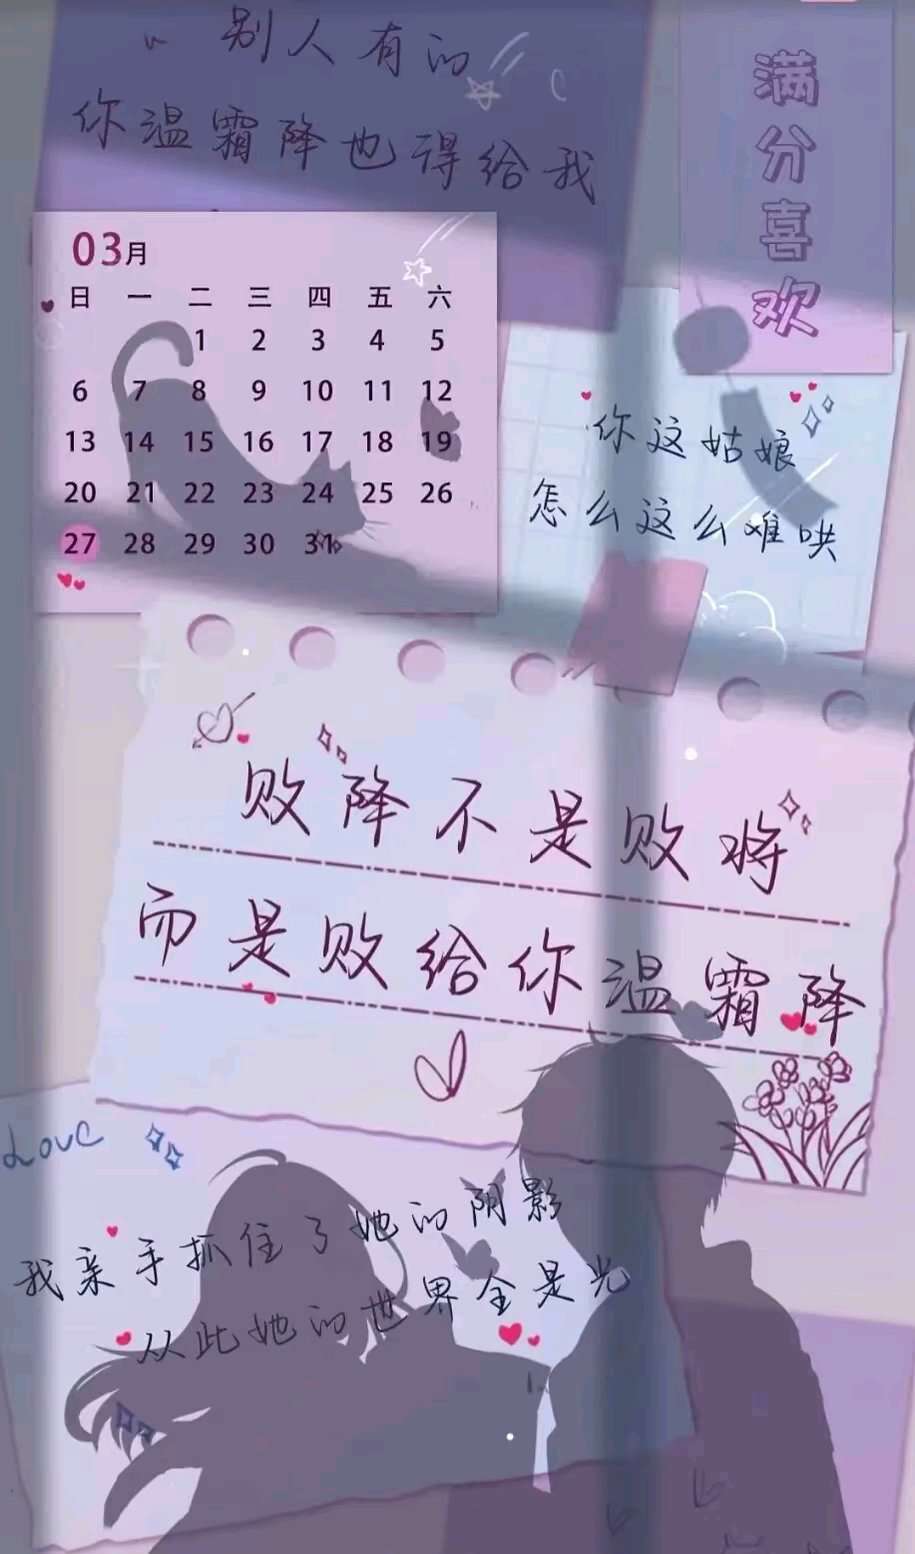 别人有的
你温霜降也得给我
满分喜欢
03月
日 一 二 三 四 五 六
1 2 3 4 5
6 7 8 9 10 11 12
13 14 15 16 17 18 19
20 21 22 23 24 25 26
27 28 29 30 31
你这姑娘
怎么这么难哄
败降不是败将
而是败给你温霜降
Love
我亲手抓住了她的阴影
从此她的世界全是光